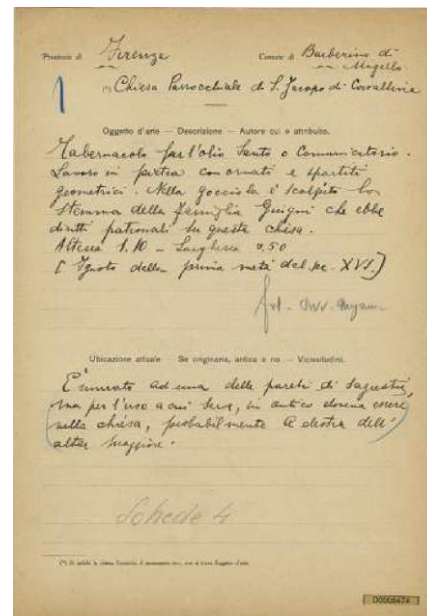 Provincia di Firenze Comune di Barberino di
Mugello.
1
(*) Chiesa Parrocchiale di S. Jacopo di
Oggetto d'arte — Descrizione — Autore cui è attribuito.
Tabernacolo per l'olio Santo o Comunicatorio.
Lavoro in pietra con ornati e spartiti
geometrici. Nella gocciola è scolpito lo
stemma della famiglia che ebbe
diritti patronali su questa chiesa.
Altezza 1.10 — Larghezza 0.50
(Ignoto della prima metà del sec. XVI.)
fot.
Ubicazione attuale — Se originaria, antica o no — Vicissitudini.
È murato ad una delle pareti di Sagrestia,
ma per l'uso a cui serve, in antico doveva essere
nella chiesa, probabilmente a destra dell'
altar maggiore.
Schede 4